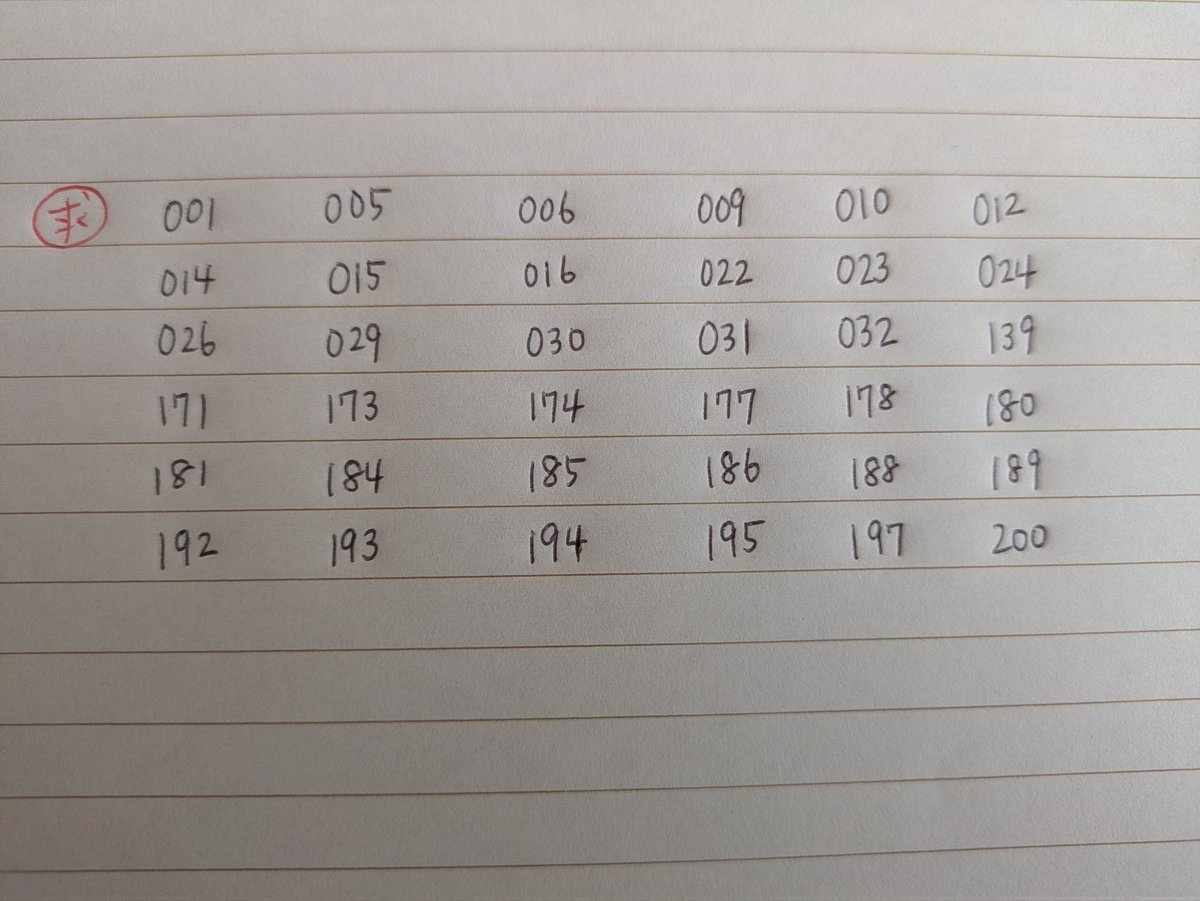 求 001 005 006 009 010 012
014 015 016 022 023 024
026 029 030 031 032 139
171 173 174 177 178 180
181 184 185 186 188 189
192 193 194 195 197 200